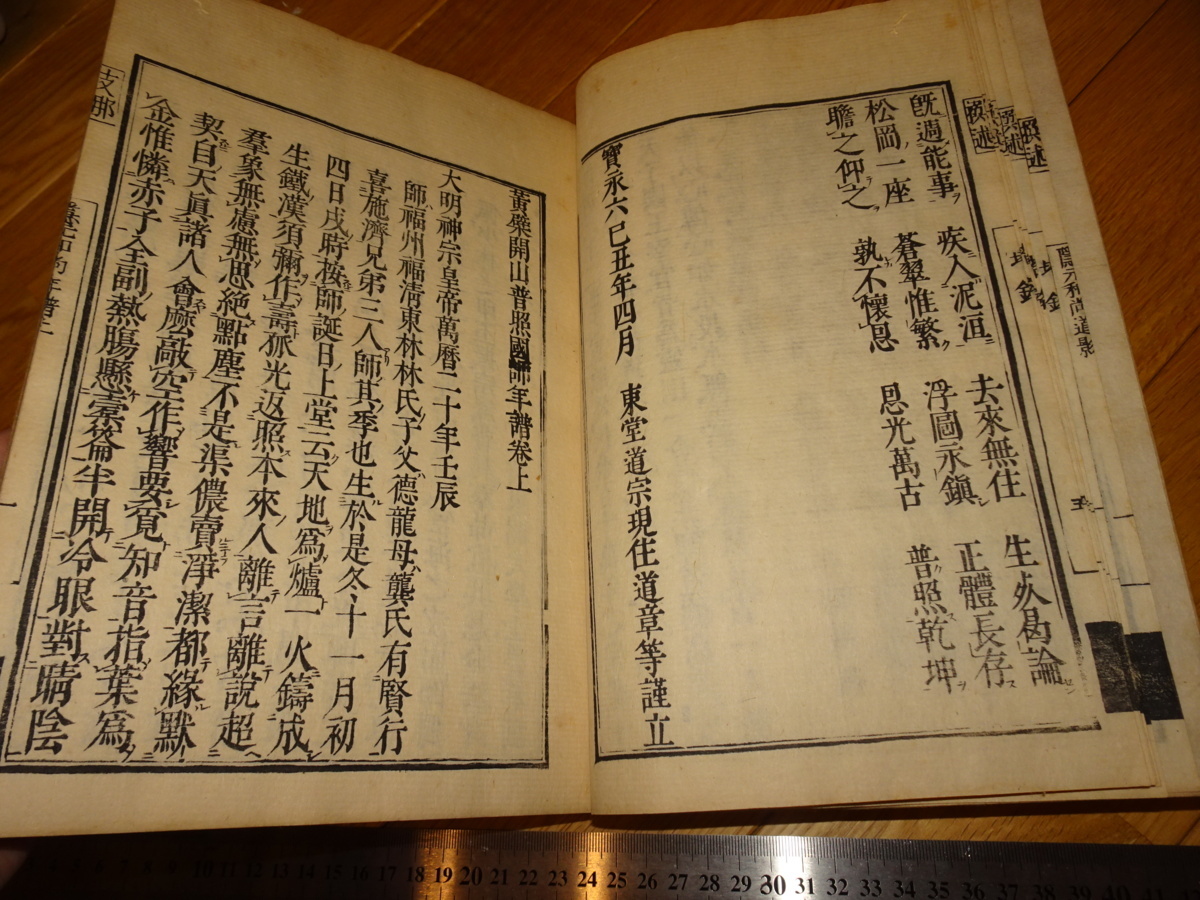 既過能事 疾入泥洹 去來無住 生死曷論
松岡一座 蒼翠惟繁 浮圖永鎮 正體長存
瞻之仰之 孰不懷恩 恩光萬古 普照乾坤
寶永六己丑年四月 東堂道宗現住道章等謹立
黃檗開山普照國師年譜卷上
大明神宗皇帝萬曆二十年壬辰
師福州福清東林林氏子父德龍母龔氏有賢行
喜施濟兄第三人師其季也生於是冬十一月初
四日戌時按師誕日上堂云天地爲爐一火鑄成
生鐵漢須彌作壽㧓光返照本來人離言離說超
羣象無慮無思絕點塵不是渠儂賣淨潔都緣默
契自天真諸人會麼敲空作響要覓知音指葉爲
金惟憐赤子全副熱腸懸橐籥半開冷眼對晴陰
支那
撰述
撰述
隱元和尚道影
塔銘
塔銘
五
20 21 22 23 24 25 26 27 28 29 30 31 32 33 34 35 36 37 38 39 40